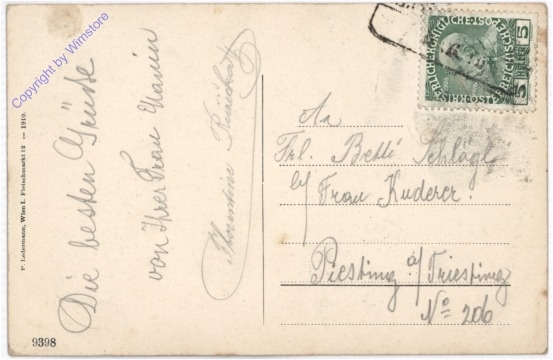 Copyright by Wimstore
P. Ledermann, Wien I. Fleischmarkt 12 — 1910.
Die besten Grüße
von Ihrer Frau
9398
KAISERLICHE KÖNIGLICHE ÖSTERREICHISCHE POST
5 HELLER 5
An
Frl. Betti Schlögl
b/ Frau Kuderer.
Piesting a/ Triesting
No 206